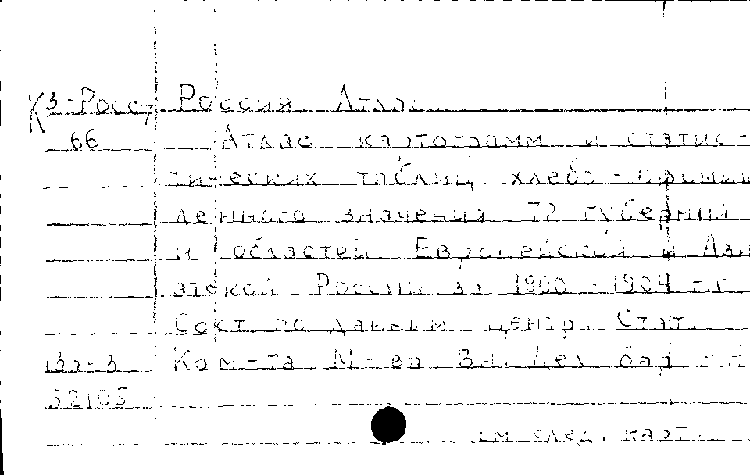 К3-Росс Россия Атлас
66 Атлас картограмм и статис-
тических таблиц хлебо-промыш
ленного значения 72 губерний
и областей Европейской и Ази
атской России за 1900-1904 г.г.
Сост. по данным центр. Стат.
Ком-та М-ва Вн. Дел
52103
см. след. карт.